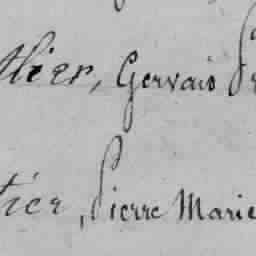 llier, Gervais
tier, Pierre Marie